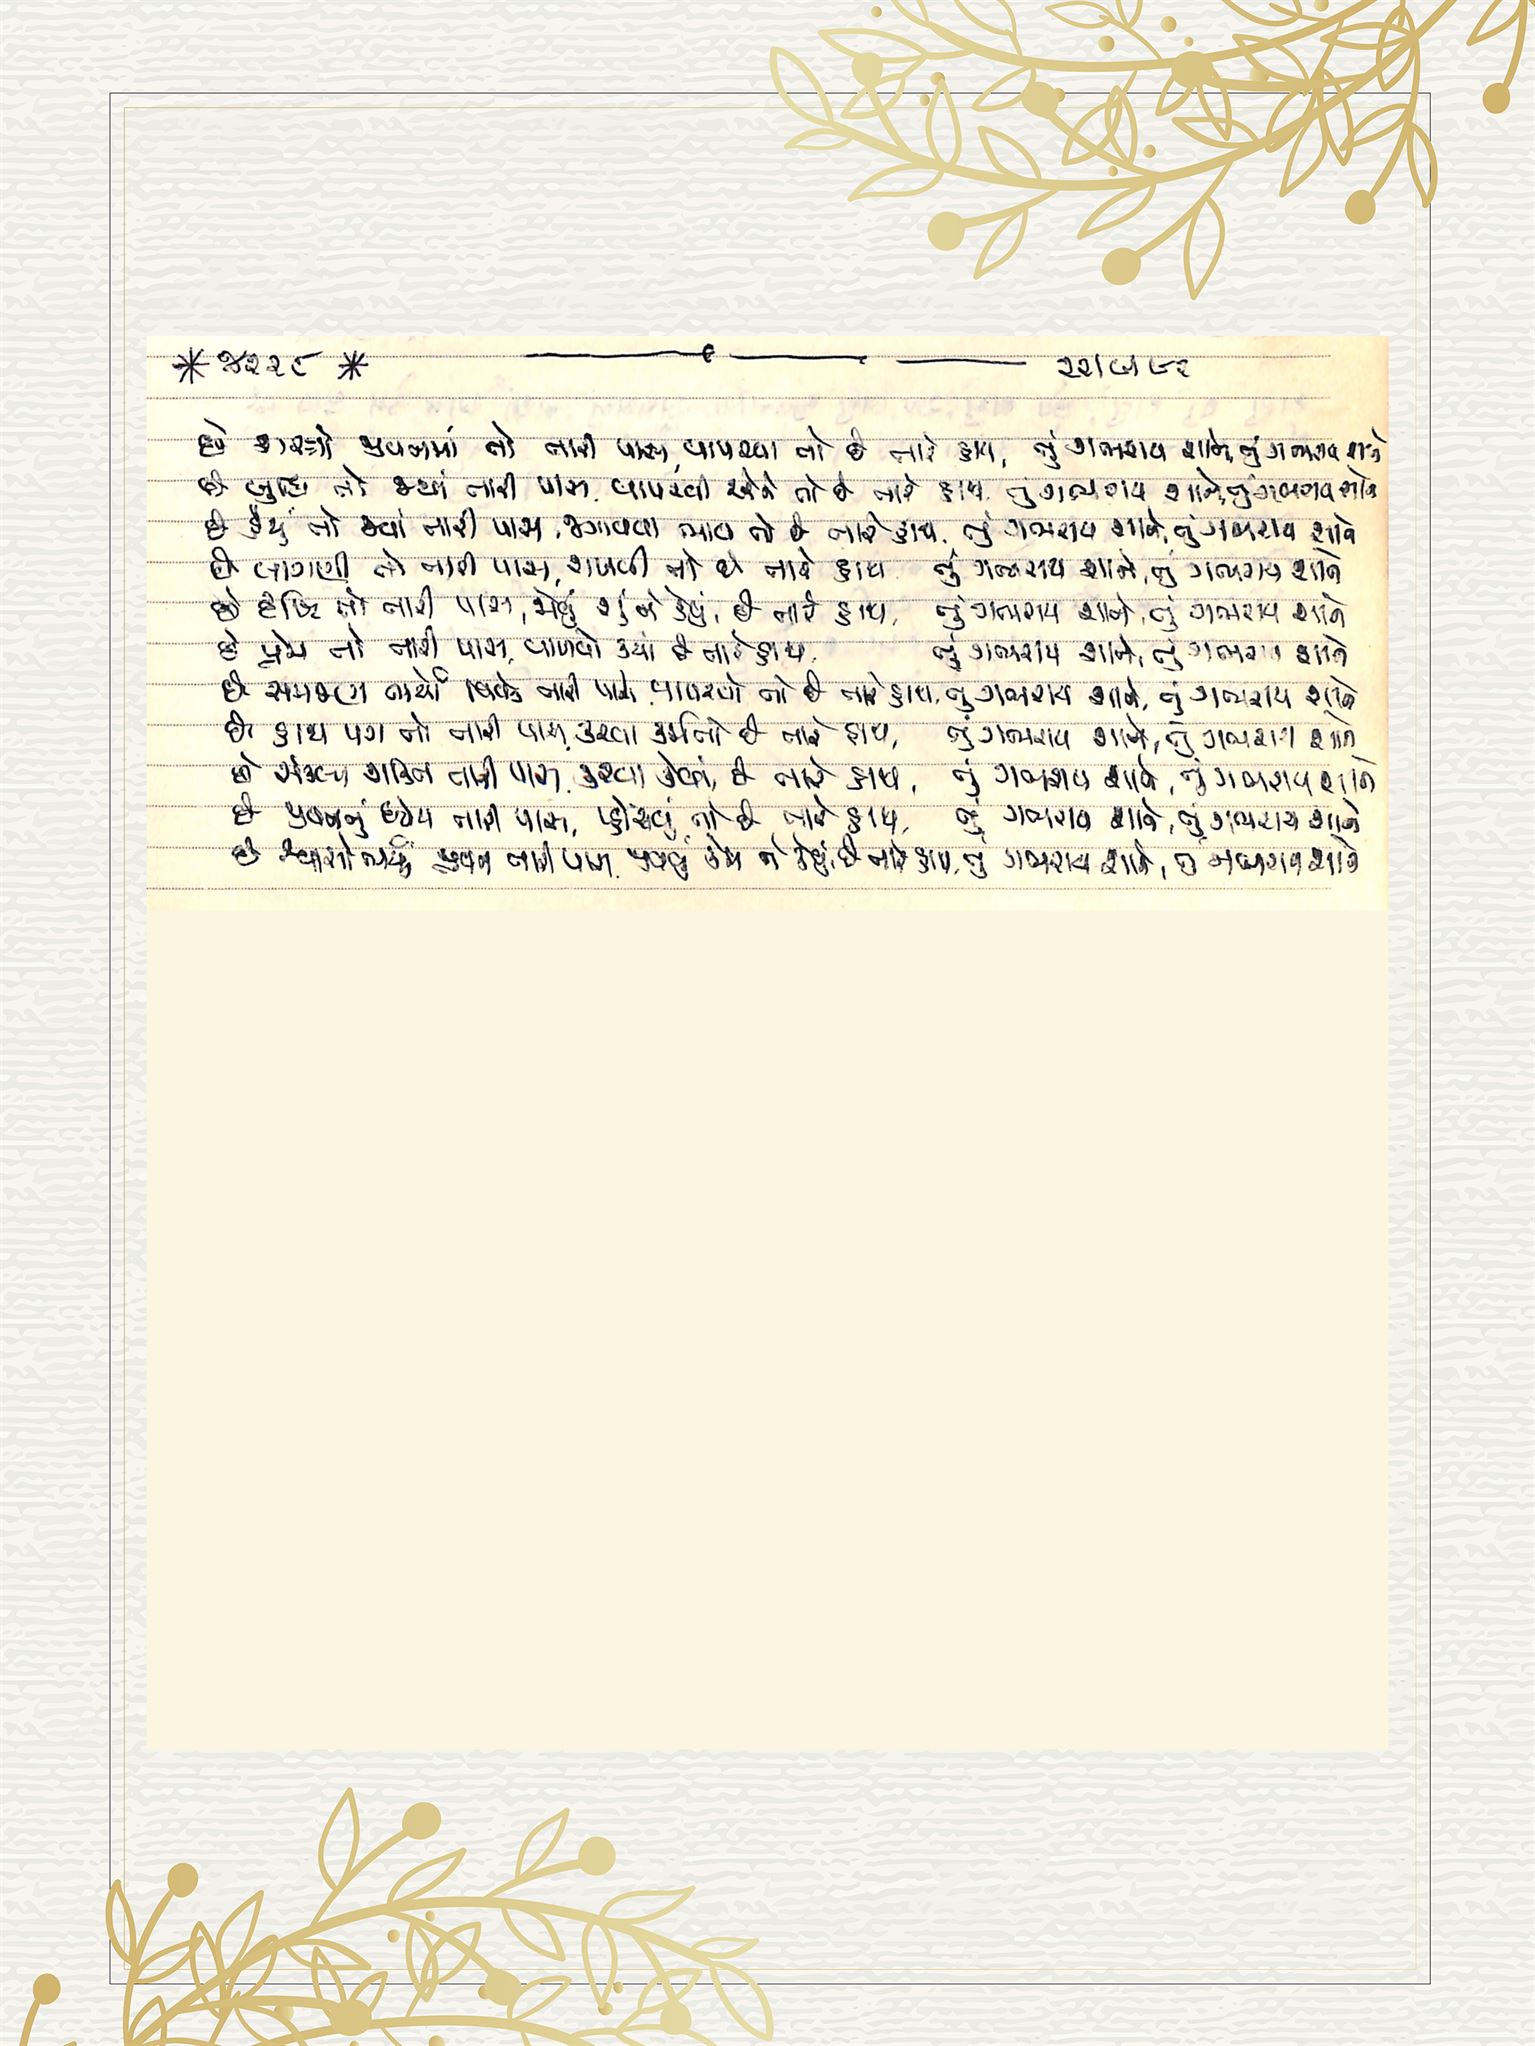 * ૪૨૨૯ * ૨૨/૯/૯૨
છે શસ્ત્રો જીવનમાં તો તારી પાસ, વાપરવા તો છે તારે હાથ, તું ગભરાય શાને, તું ગભરાય શાને
છે બુદ્ધિ તો જ્યાં તારી પાસ, વાપરવી એને તો છે તારે હાથ, તું ગભરાય શાને, તું ગભરાય શાને
છે હૈયું તો જ્યાં તારી પાસ, જગાવવા ભાવ તો છે તારે હાથ, તું ગભરાય શાને, તું ગભરાય શાને
છે લાગણી તો તારી પાસ, રાખવી તો છે તારે હાથ તું ગભરાય શાને, તું ગભરાય શાને
છે દૃષ્ટિ તો તારી પાસ, જોવું શું ને કેવું, છે તારે હાથ, તું ગભરાય શાને, તું ગભરાય શાને
છે પ્રેમ તો તારી પાસ, વાળવો ક્યાં છે તારે હાથ, તું ગભરાય શાને, તું ગભરાય શાને
છે સમજણ ભર્યો વિવેક તારી પાસે, વાપરવો તો છે તારે હાથ, તું ગભરાય શાને, તું ગભરાય શાને
છે હાથ પગ તો તારી પાસ, કરવા કર્મનો છે તારે હાથ, તું ગભરાય શાને, તું ગભરાય શાને
છે સંકલ્પ શક્તિ તારી પાસ, કરવા કેવાં, છે તારે હાથ, તું ગભરાય શાને, તું ગભરાય શાને
છે જીવનનું ધ્યેય તારી પાસ, પહોંચવું તો છે તારે હાથ, તું ગભરાય શાને, તું ગભરાય શાને
છે શ્વાસો ભર્યું જીવન તારી પાસ, જીવવું કેમ ને કેવું, છે તારે હાથ, તું ગભરાય શાને, તું ગભરાય શાને